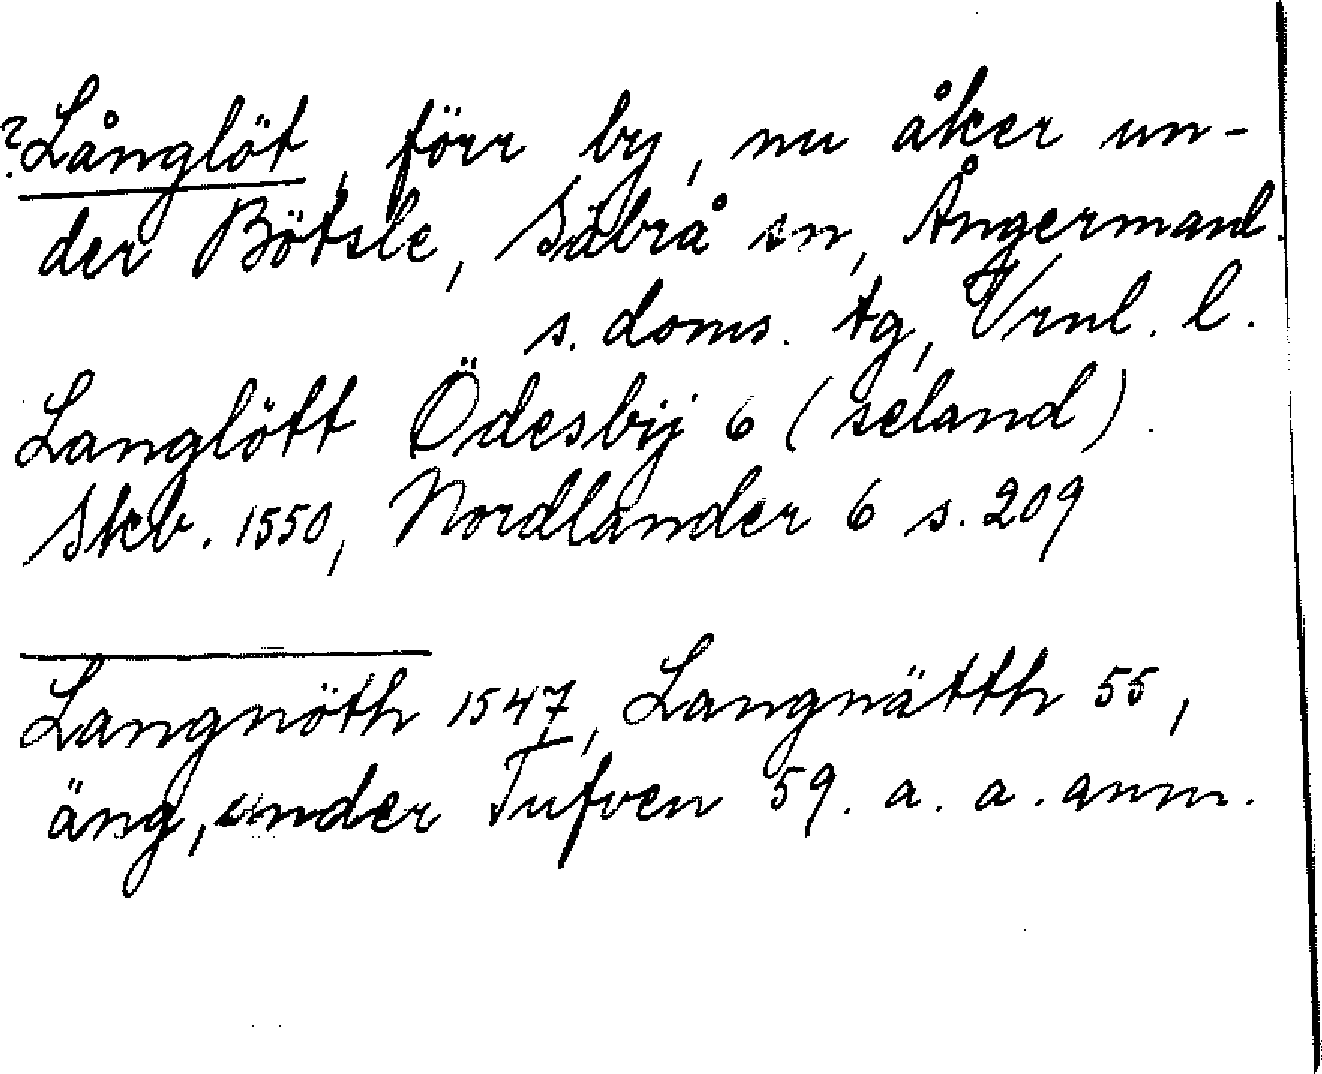 ?Långlöt, förr by, nu åker un-
der Bötsle, Säbrå sn, Ångermanl.
s. doms. tg, Vrnl. l.
Langlött Ödesbÿ 6 (seland).
Skb. 1550, Nordlander 6 s. 209
Langnöth 1547, Langnätth 55,
äng, under Tufven 59. a. a. anm.